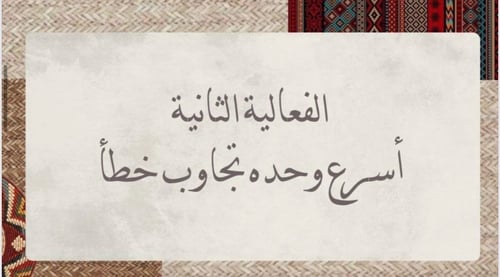 الفعالية الثانية
أسرع وحده تجاوب خطأ